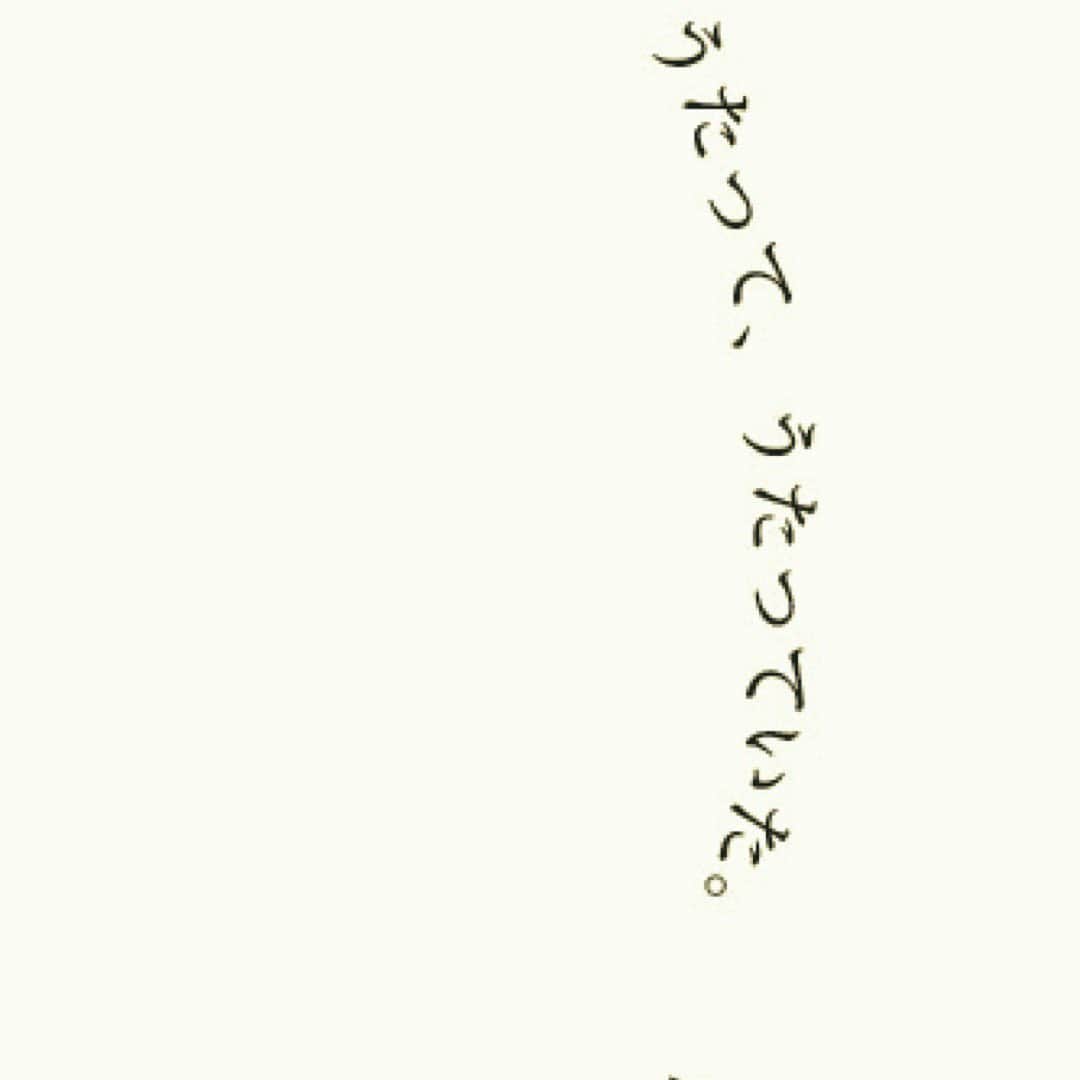 うたって、うたっていった。